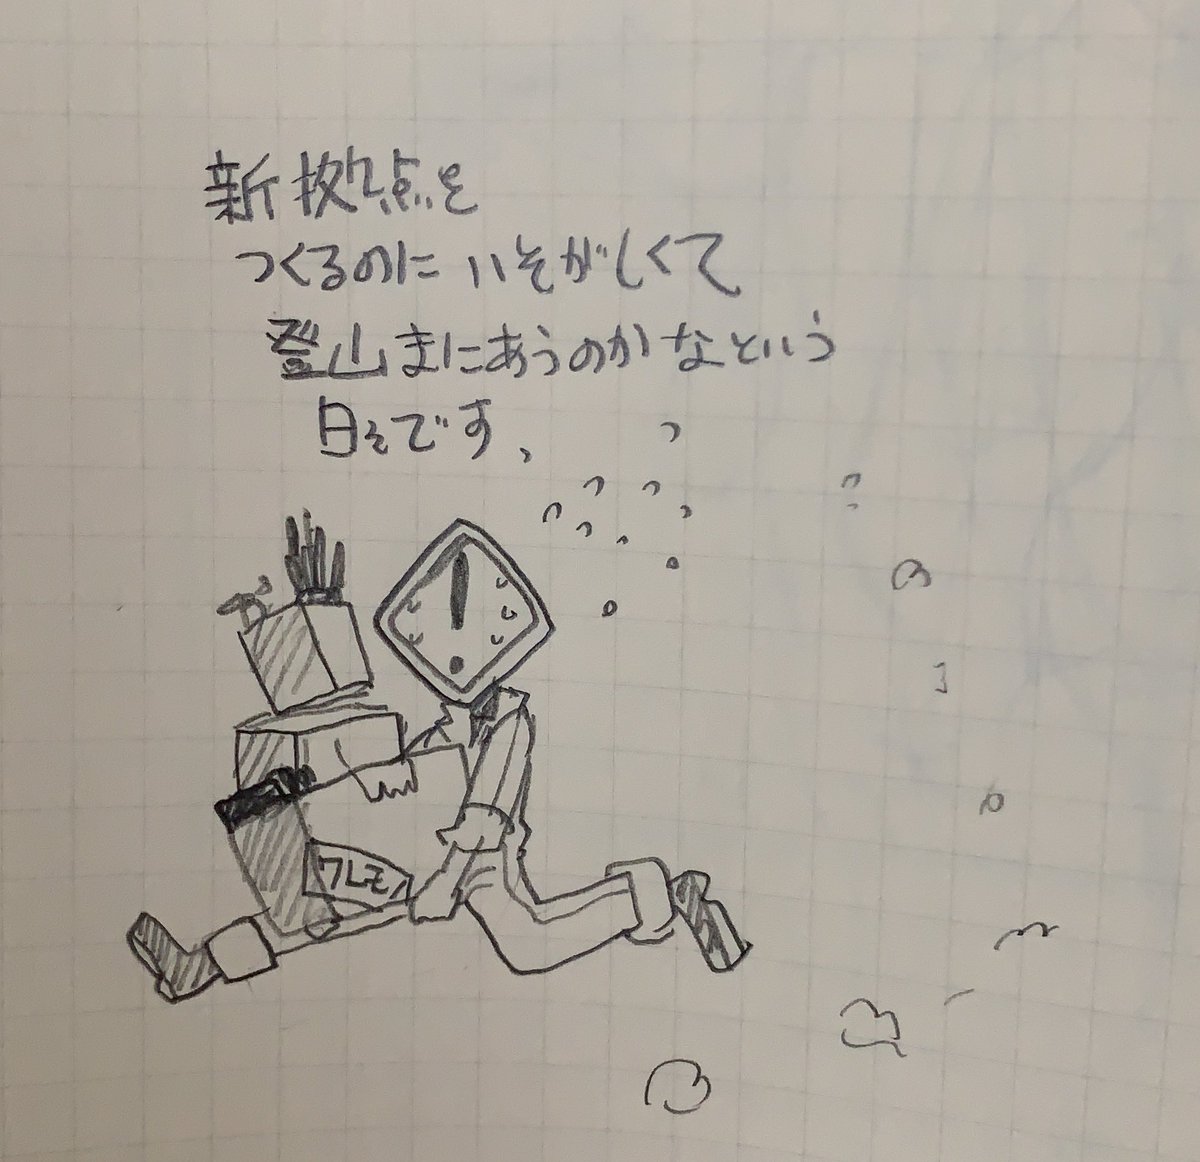 新拠点を
つくるのにいそがしくて
登山まにあうのかなという
日々です、
ワレモノ